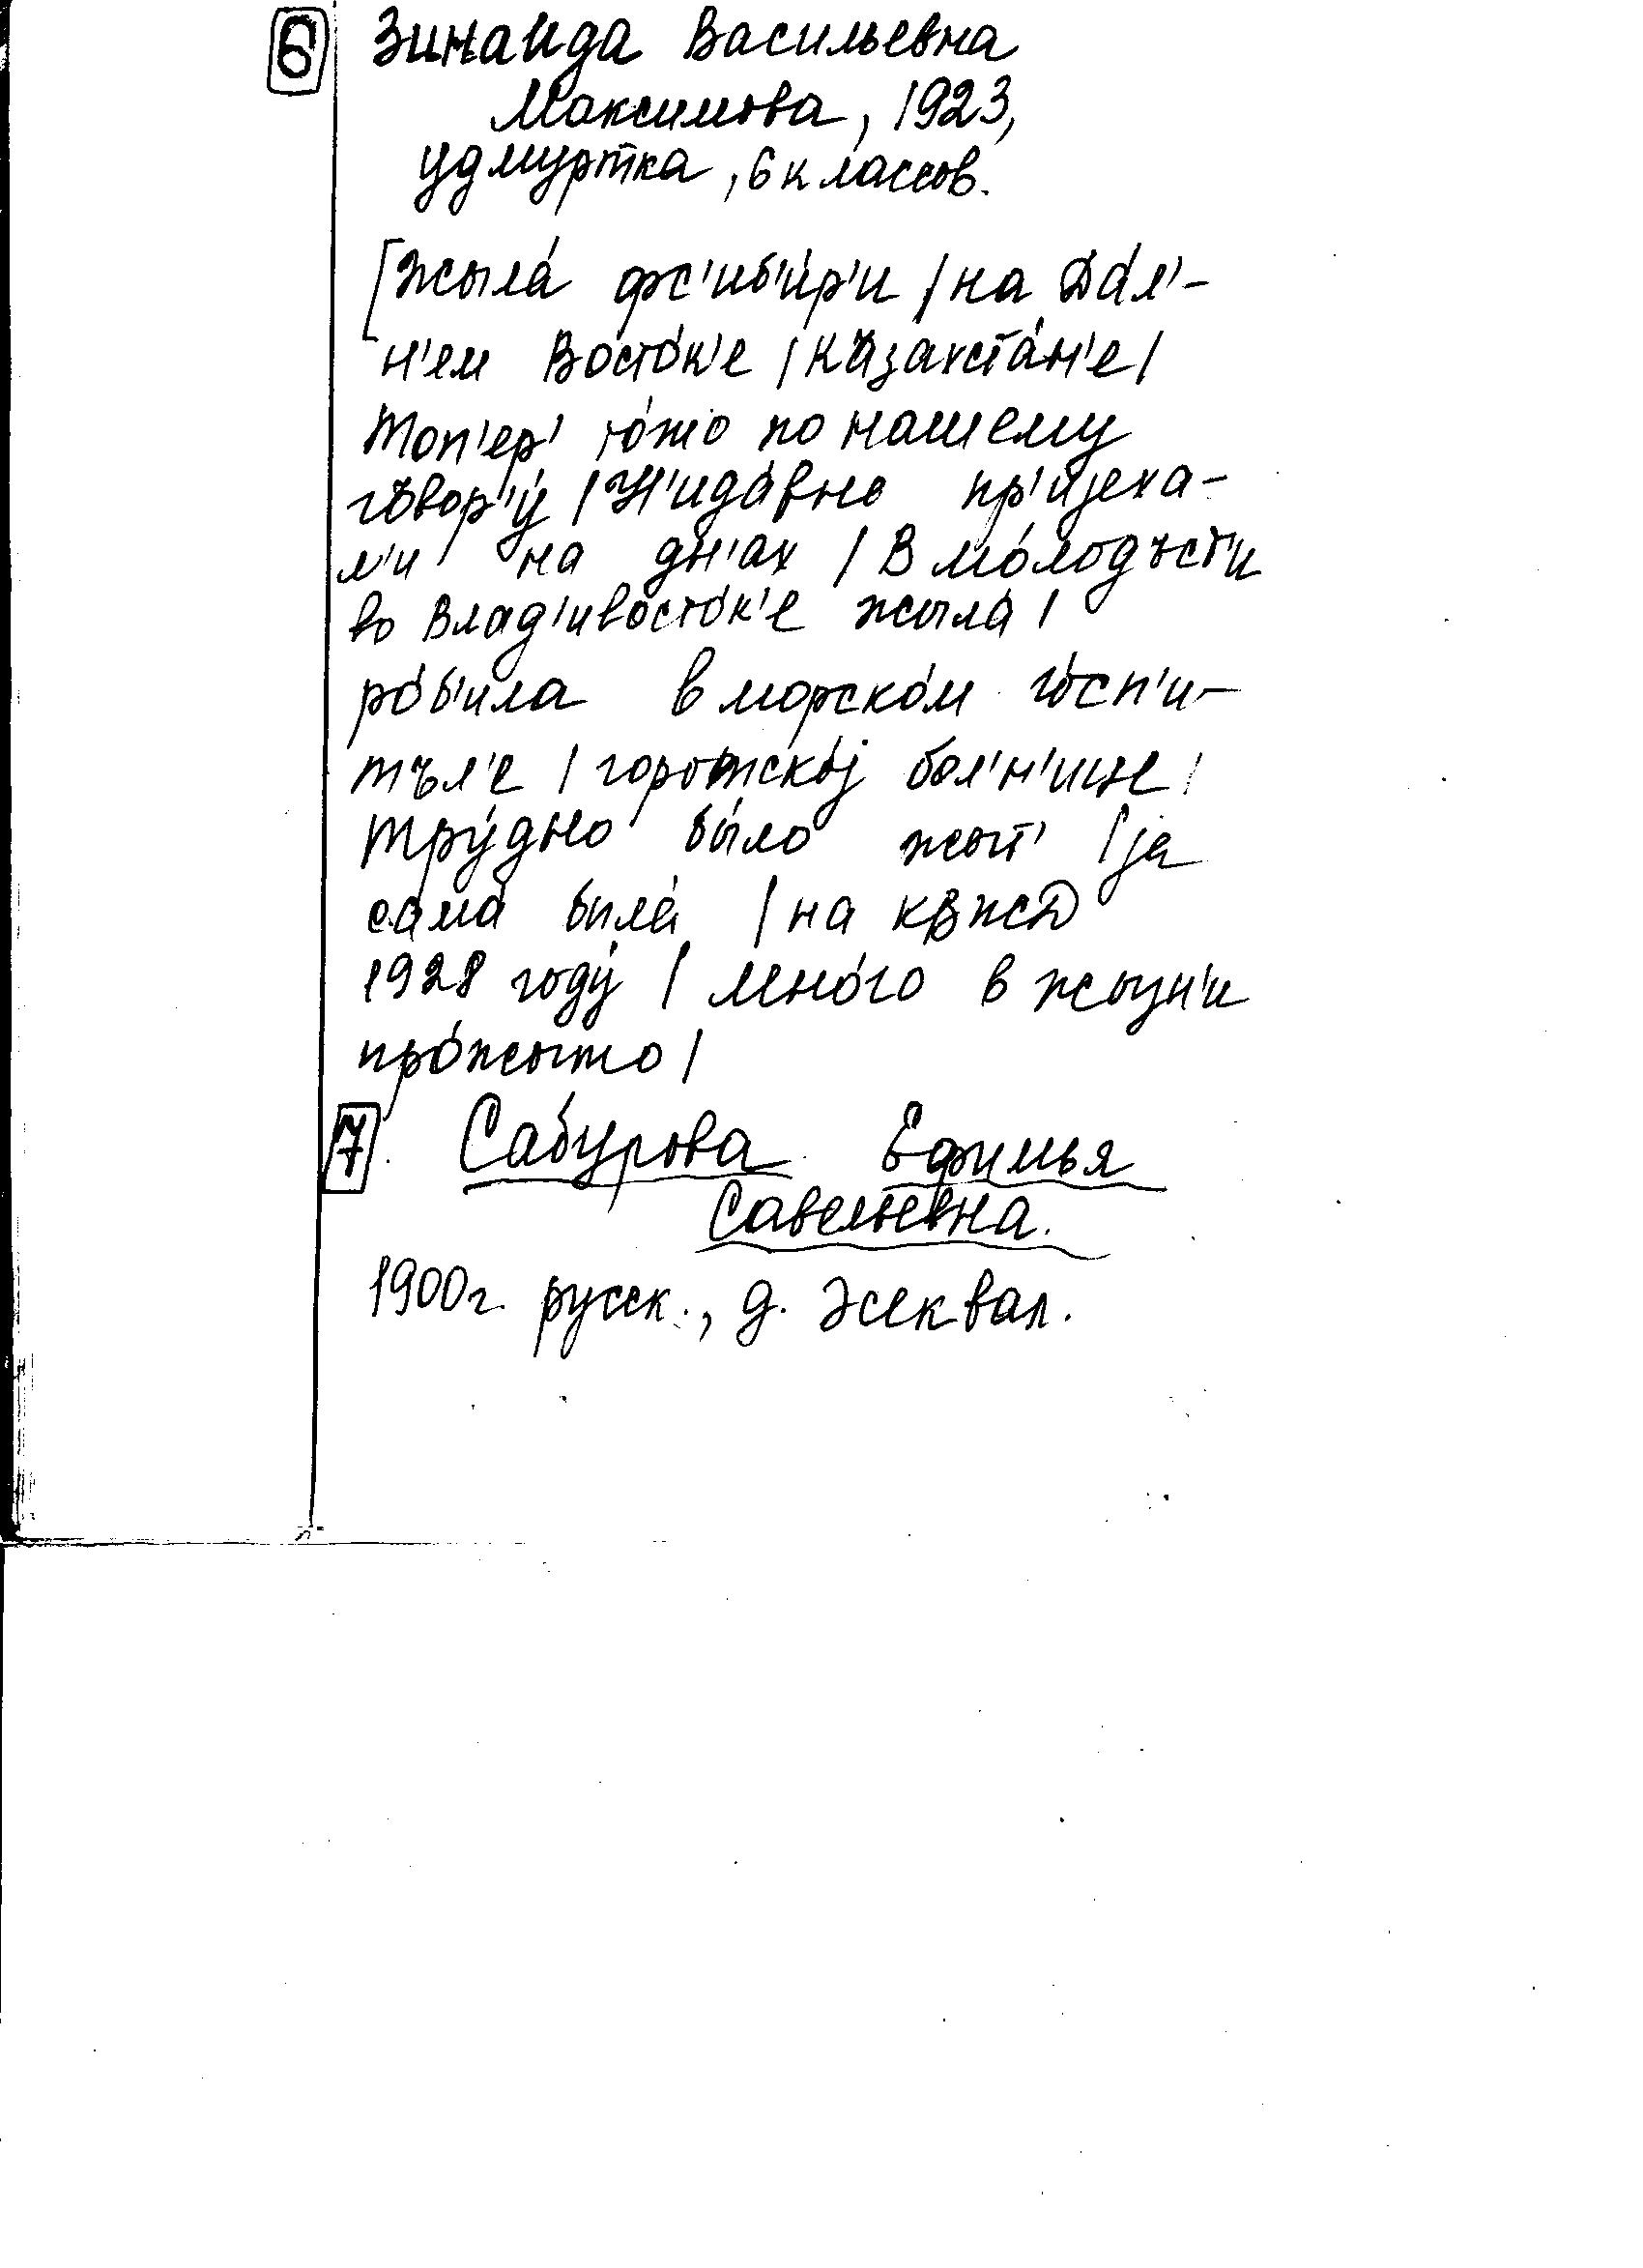 6 Зинаида Васильевна
Максимова, 1923,
удмуртка, 6 классов.
[жыла́ фс'иб'и́р'и / на Да́л'-
н'ем Восто́к'е / Казахста́н'е /
топ'ер' то́жо по нашему
гъвор'у́ / Н'ида́вно пр'ијеха-
л'и на дн'ах / В мо́лодъст'и
во Влад'ивосто́к'е жыла́ /
ро́б'ила в морско́м го́сп'и-
тъл'е / горотско́ј бол'н'ице /
тру́дно бы́ло жыт' / ја
сама́ была́ / на КВЖД
1928 году́ / мно́го в жызн'и
про́жыто /
7. Сабурова Ефимья
Савельевна.
1900г. русск., д. Жеквап.